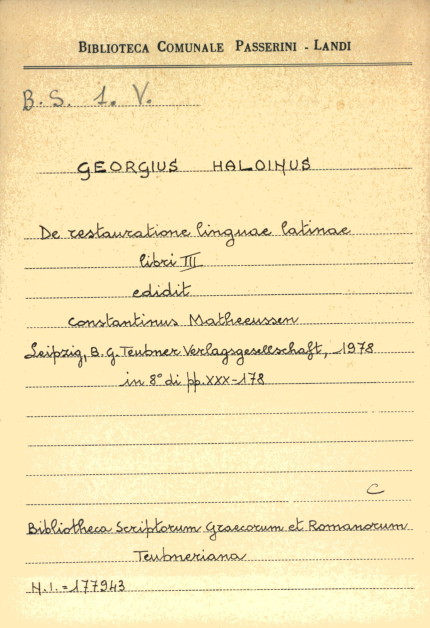 BIBLIOTECA COMUNALE PASSERINI - LANDI
B. S. 1. V.
GEORGIUS HALOINUS
De restauratione linguae latinae
libri III
edidit
Constantinus Matheeussen
Leipzig, B. G. Teubner Verlagsgesellschaft, 1978
in 8° di pp. XXX-178
C
Bibliotheca Scriptorum Graecorum et Romanorum
Teubneriana
N.I. = 177943